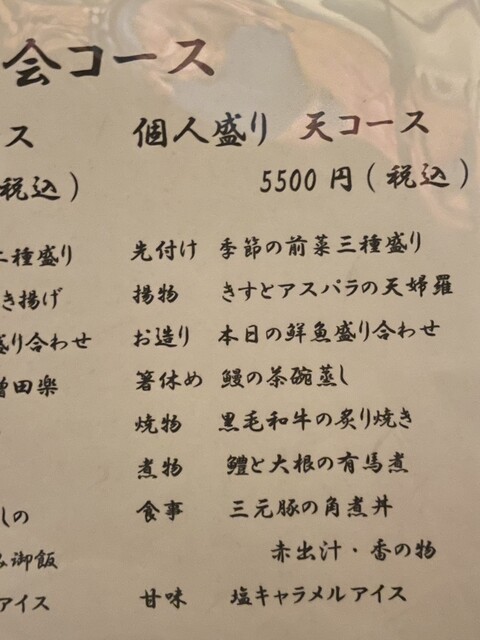 会コース
ス
個人盛り 天コース
税込)
5500円(税込)
種盛り
先付け 季節の前菜三種盛り
き揚げ
揚物 きすとアスパラの天婦羅
盛り合わせ
お造り 本日の鮮魚盛り合わせ
田楽
箸休め 鰻の茶碗蒸し
焼物 黒毛和牛の炙り焼き
煮物 鱧と大根の有馬煮
しの
食事 三元豚の角煮丼
御飯
赤出汁・香の物
アイス
甘味 塩キャラメルアイス